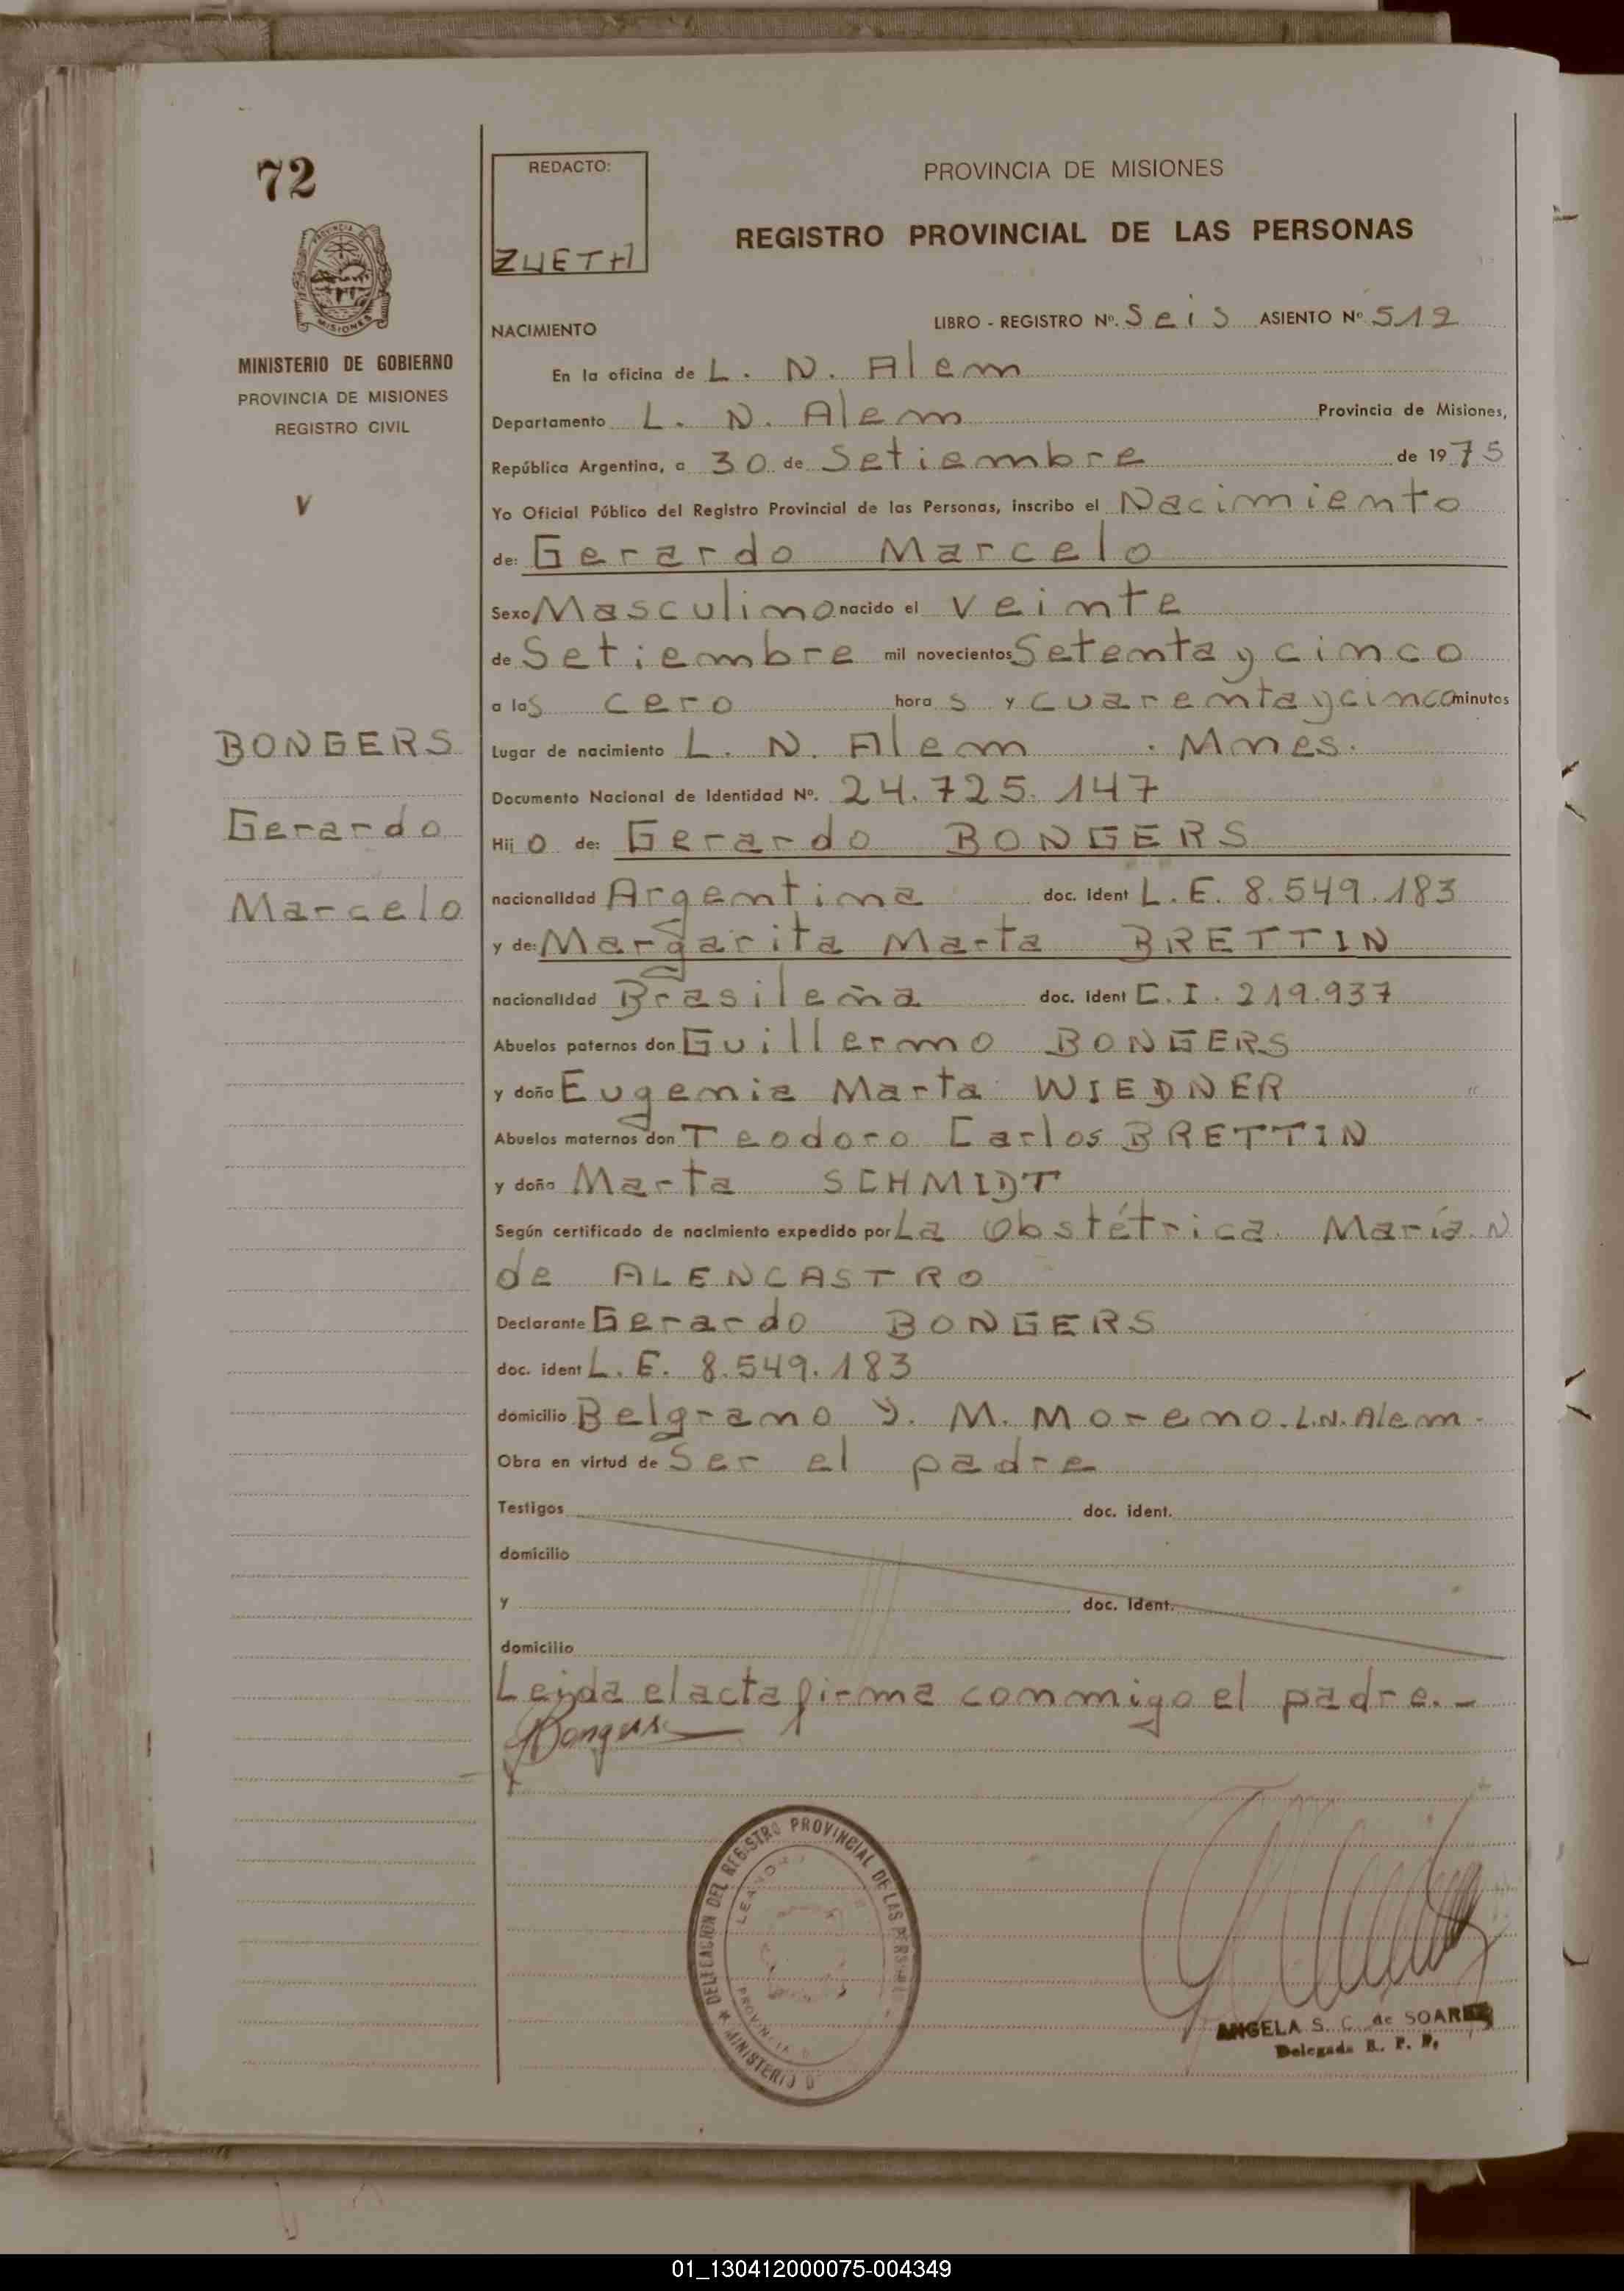 72
REDACTO:
ZUETH
PROVINCIA DE MISIONES
REGISTRO PROVINCIAL DE LAS PERSONAS
MISIONES
MINISTERIO DE GOBIERNO
PROVINCIA DE MISIONES
REGISTRO CIVIL
V
BONGERS
Gerardo
Marcelo
NACIMIENTO
LIBRO - REGISTRO Nº. Seis ASIENTO Nº 512
En la oficina de L. N. Alem
Departamento L. N. Alem Provincia de Misiones,
República Argentina, a 30 de Setiembre de 1975
Yo Oficial Público del Registro Provincial de las Personas, inscribo el Nacimiento
de: Gerardo Marcelo
Sexo Masculino nacido el veinte
de Setiembre mil novecientos Setenta y cinco
a las cero horas y cuarenta y cinco minutos
Lugar de nacimiento L. N. Alem . Mnes.
Documento Nacional de Identidad Nº. 24.725.147
Hijo de: Gerardo BONGERS
nacionalidad Argentina doc. ident L.E. 8.549.183
y de: Margarita Marta BRETTIN
nacionalidad Brasileña doc. ident C.I. 219.937
Abuelos paternos don Guillermo BONGERS
y doña Eugenia Marta WIEDNER
Abuelos maternos don Teodoro Carlos BRETTIN
y doña Marta SCHMIDT
Según certificado de nacimiento expedido por La Obstétrica. María. N
de ALENCASTRO
Declarante Gerardo BONGERS
doc. ident L.E. 8.549.183
domicilio Belgrano y. M. Moreno. L.N. Alem.
Obra en virtud de Ser el padre
Testigos doc. ident.
domicilio
y doc. ident.
domicilio
Leida el acta firma conmigo el padre.-
Bongers
DELEGACION DEL REGISTRO PROVINCIAL DE LAS PERSO
LEANDRO
PROVINCIA D
MINISTERIO D
ANGELA S. C. de SOAREZ
Delegada R. P. P.
01_130412000075-004349